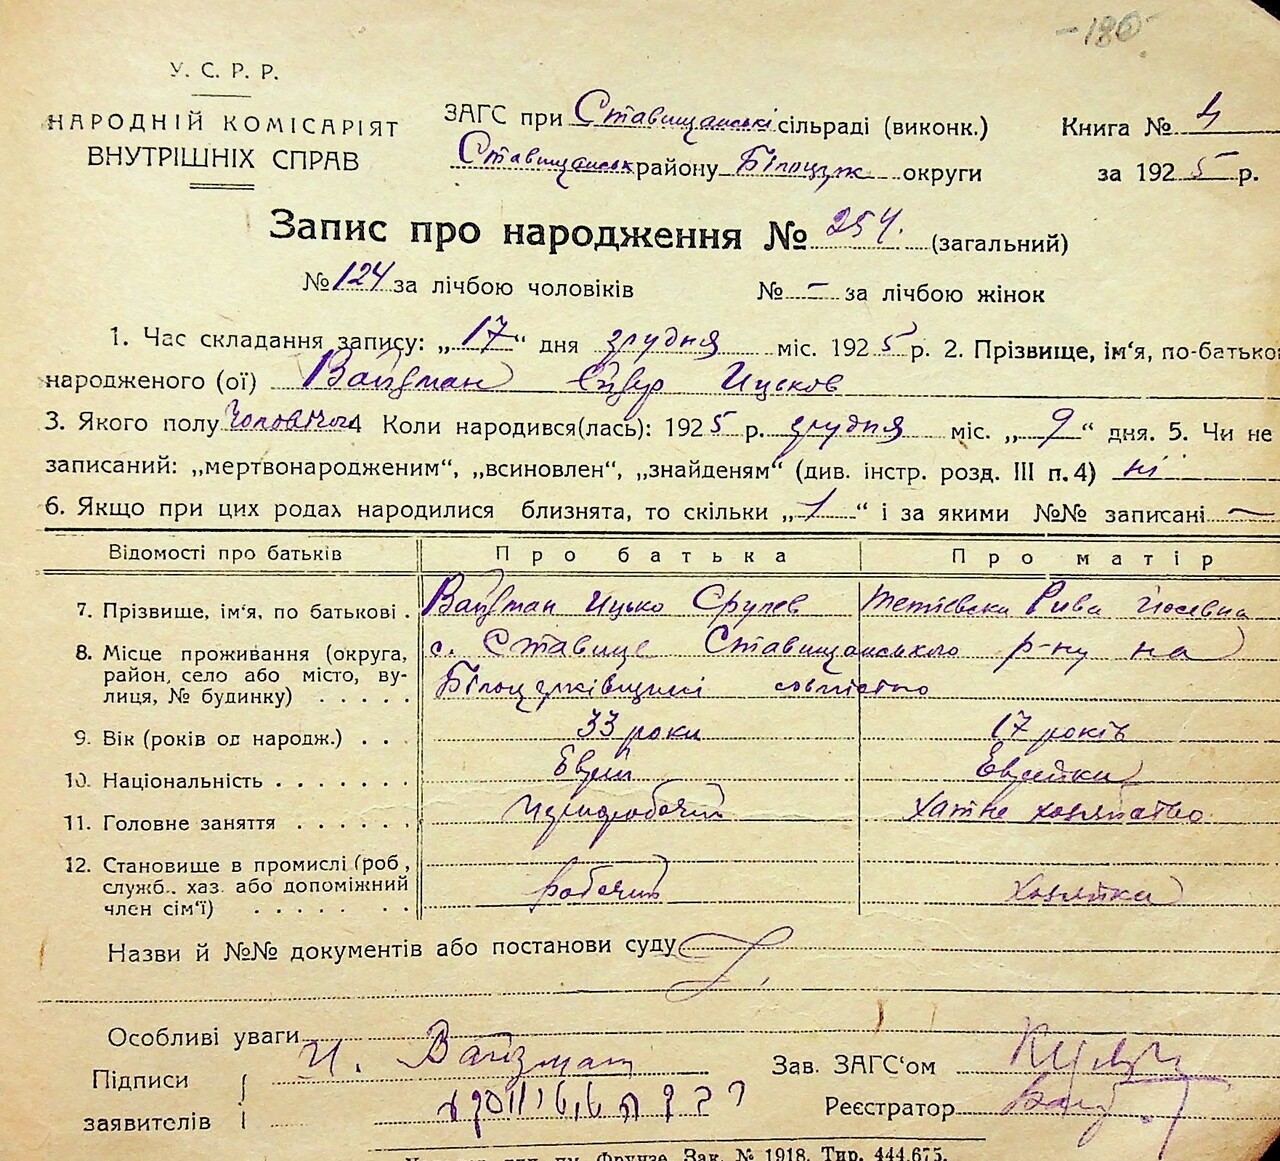 -180-
У. С. Р. Р.
НАРОДНІЙ КОМІСАРІЯТ
ВНУТРІШНІХ СПРАВ
ЗАГС при Ставищанські сільраді (виконк.)
Ставищанськ району Білоцерк округи
Книга № 4
за 1925 р.
Запис про народження № 254. (загальний)
№ 124 за лічбою чоловіків № — за лічбою жінок
1. Час складання запису: „17“ дня грудня міс. 1925 р. 2. Прізвище, ім'я, по-батькові
народженого (ої) Вайзман Ицьков
3. Якого полу Чоловічого 4 Коли народився(лась): 1925 р. грудня міс. „9“ дня. 5. Чи не
записаний: „мертвонародженим“, „всиновлен“, „знайденям“ (див. інстр. розд. III п. 4) ні
6. Якщо при цих родах народилися близнята, то скільки „1“ і за якими №№ записані —
Відомості про батьків Про батька Про матір
7. Прізвище, ім'я, по батькові . Вайзман Ицько Срулев Тетіевска Рива Йосевна
8. Місце проживання (округа, район, село або місто, вулиця, № будинку) . . . . . с. Ставище Ставищанського р-ну на
Білоцерківщині совмістно
9. Вік (років од народж.) . . . 33 роки 17 років
10. Національність . . . . . . . Еврей Еврейка
11. Головне заняття . . . . . . Чорноробочий Хатне хозяйство
12. Становище в промислі (роб., служб., хаз. або допоміжний член сім'ї) . . . . . . . робочий Хозяйка
Назви й №№ документів або постанови суду
Особливі уваги
Підписи
заявителів
И. Вайзман
Зав. ЗАГС‘ом
Реєстратор
Зак. № 1918. Тир. 444.675.